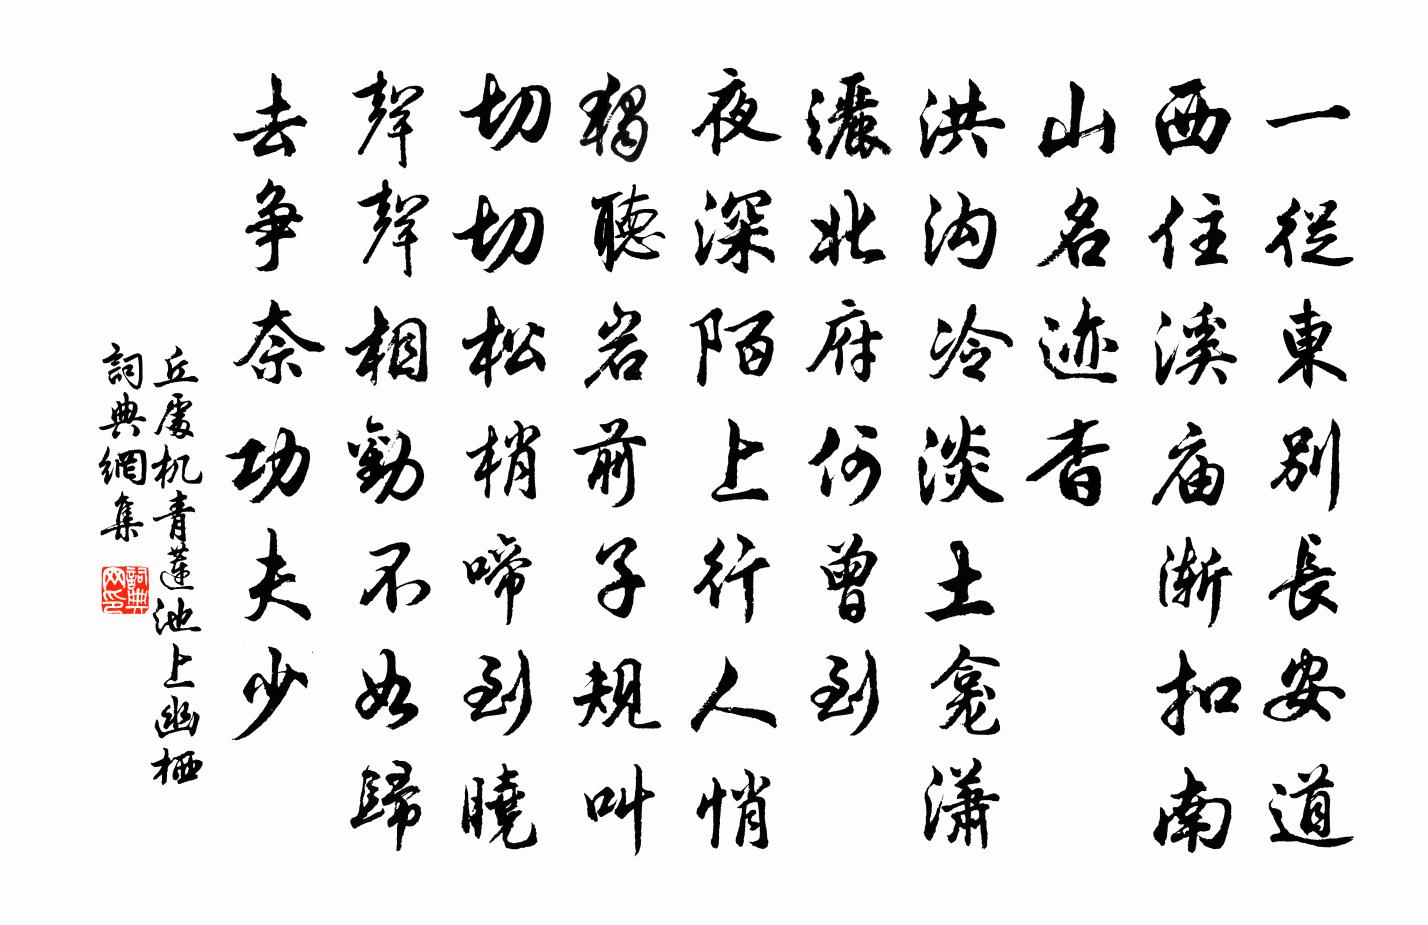 一從東別長安道
西住溪庙渐扣南
山名迹杳
洪沟冷淡土龛潇
灑北府何曾到
夜深陌上行人悄
獨聽岩前子規叫
切切松梢啼到曉
聲聲相勸不如歸
去争奈功夫少
丘處机青蓮池上幽栖
詞典網集
詞典